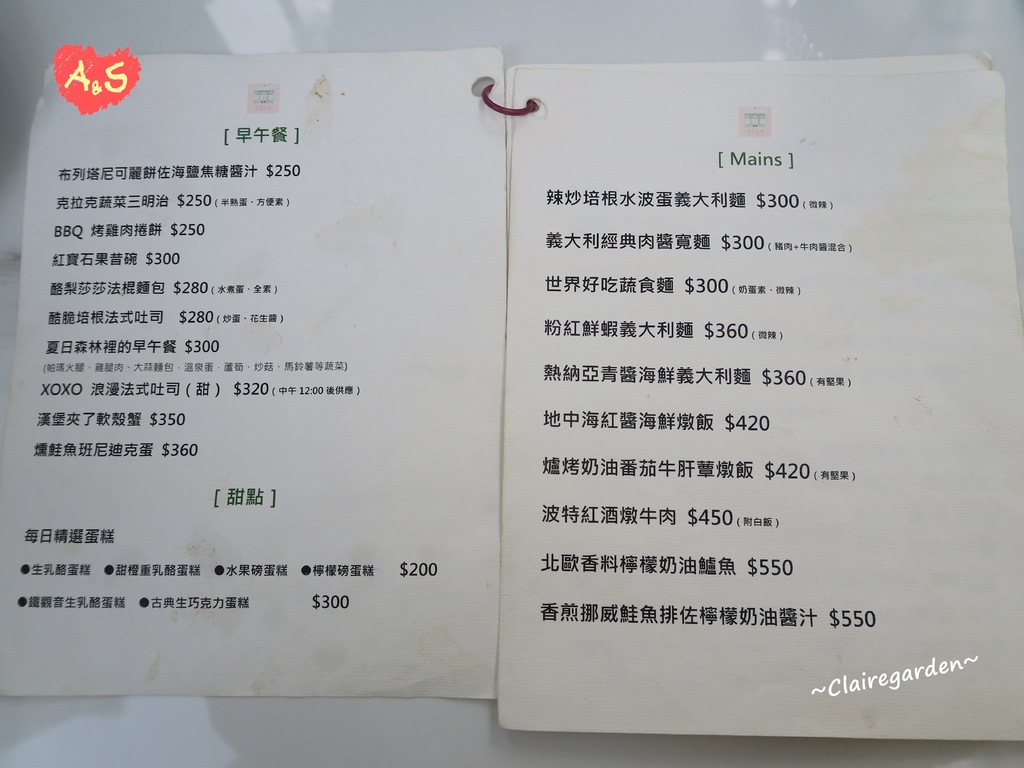 A&S
[ 早午餐 ]
布列塔尼可麗餅佐海鹽焦糖醬汁 $250
克拉克蔬菜三明治 $250 ( 半熟蛋、方便素 )
BBQ 烤雞肉捲餅 $250
紅寶石果昔碗 $300
酪梨莎莎法棍麵包 $280 ( 水煮蛋、全素 )
酷脆培根法式吐司 $280 ( 炒蛋、花生醬 )
夏日森林裡的早午餐 $300
(帕瑪火腿、雞腿肉、大蒜麵包、溫泉蛋、蘆筍、炒菇、馬鈴薯等蔬菜)
XOXO 浪漫法式吐司 ( 甜 ) $320 ( 中午 12:00 後供應 )
漢堡夾了軟殼蟹 $350
燻鮭魚班尼迪克蛋 $360
[ 甜點 ]
每日精選蛋糕
●生乳酪蛋糕 ●甜橙重乳酪蛋糕 ●水果磅蛋糕 ●檸檬磅蛋糕 $200
●鐵觀音生乳酪蛋糕 ●古典生巧克力蛋糕 $300
[ Mains ]
辣炒培根水波蛋義大利麵 $300 ( 微辣 )
義大利經典肉醬寬麵 $300 ( 豬肉+牛肉醬混合 )
世界好吃蔬食麵 $300 ( 奶蛋素、微辣 )
粉紅鮮蝦義大利麵 $360 ( 微辣 )
熱納亞青醬海鮮義大利麵 $360 ( 有堅果 )
地中海紅醬海鮮燉飯 $420
爐烤奶油番茄牛肝蕈燉飯 $420 ( 有堅果 )
波特紅酒燉牛肉 $450 ( 附白飯 )
北歐香料檸檬奶油鱸魚 $550
香煎挪威鮭魚排佐檸檬奶油醬汁 $550
~Clairegarden~